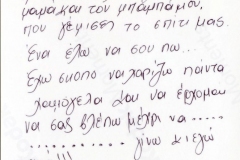 μαμά και τον μπαμπά μου,
που γέμισες το σπίτι μας.
Ένα έχω να σου πω...
Έχω σκοπό να χαρίζω πάντα
χαμόγελα και να έρχομαι
να σας βλέπω μέχρι να .....
............. γίνω κι εγώ
!!!